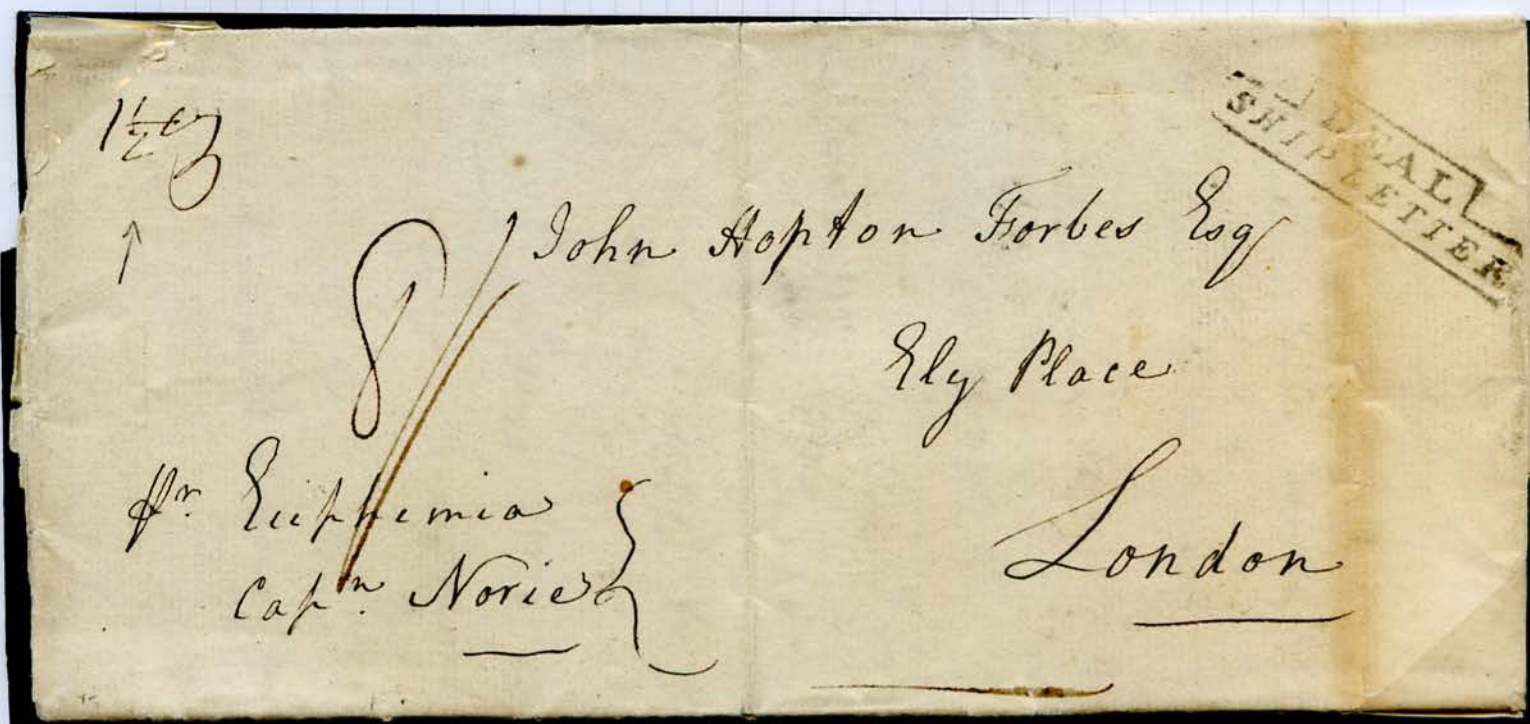 1½ oz
DEAL
SHIP LETTER
8/
John Hopton Forbes Esq
Ely Place
London
pr Euphemia
Capn. Norie